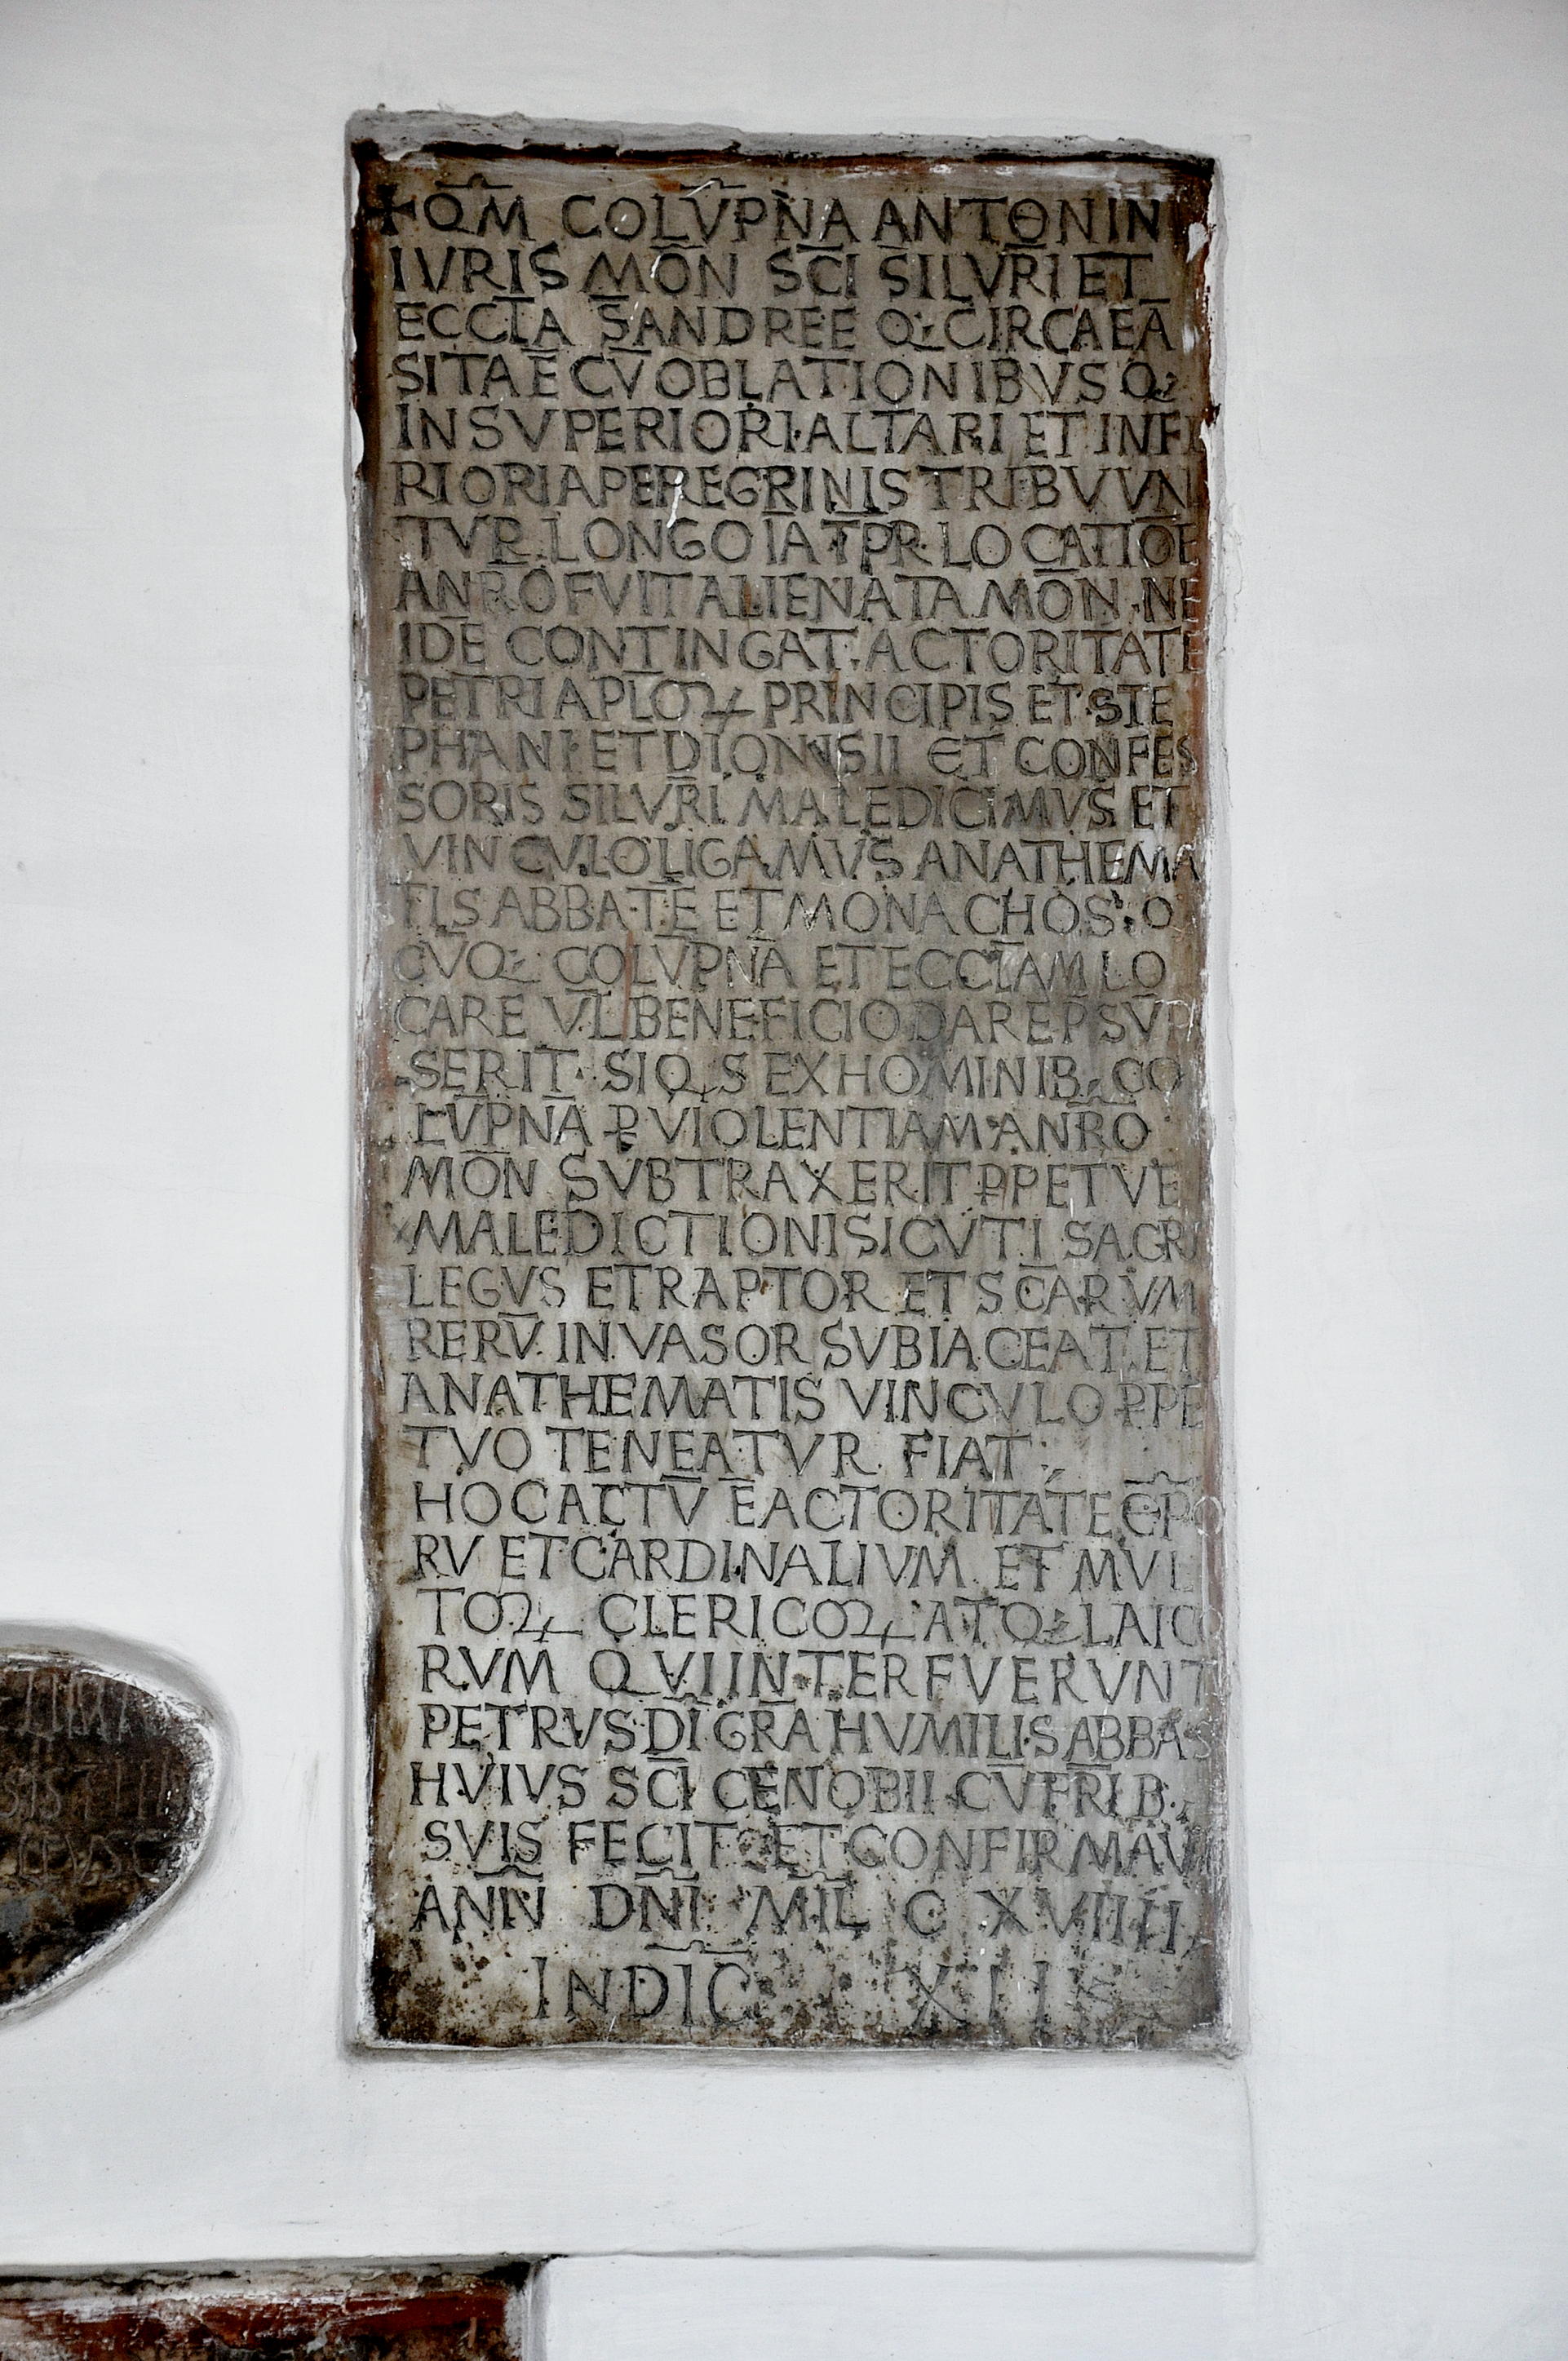 ✝ Q̄M COLV̄PN̄A ANTONIN
IVRIS MŌN SC̄I SILVR̄I ET
ECCL̄A S̄ ANDREE Q: CIRCA EĀ
SITA Ē CV̄ OBLATIONIBVS Q:
IN SVPERIORI ALTARI ET INFE
RIORI A PEREGRINIS TRIBVVN
TVR. LONGO IĀ T̄PR LOCATIŌE
A NR̄O FVIT ALIENATA MŌN. NE
IDĒ CONTINGAT. ACTORITATE
PETRI APL̄OꝜ PRINCIPIS ET STE
PHANI ET DIONISII ET CONFES
SORIS SILVR̄I MALEDICIMVS ET
VINCVLO LIGAMVS ANATHEMA
TIS ABBATĒ ET MONACHOS. Q
CV̄Q: COLV̄PN̄A ET ECCL̄AM LO
CARE VL̄ BENEFICIO DARE P̄SV̄P
SERIT. SI Q S EX HOMINIB: CO
LV̄PN̄A Ꝑ VIOLENTIAM A NR̄O
MŌN SVBTRAXERIT ꝐPETVE
MALEDICTIONI SICVTI SACRI
LEGVS ET RAPTOR ET SC̄ARVM
RERV̄ INVASOR SVBIACEAT. ET
ANATHEMATIS VINCVLO ꝐPE
TVO TENEATVR. FIAT:
HOC ACTV̄ Ē ACTORITATE EP̄O
RV ET CARDINALIVM ET MVL
TOꝜ CLERICOꝜ ATQ: LAICO
RVM QVI INTERFVERVNT
PETRVS DĪ GR̄A HVMILIS ABBAS
HVIVS SC̄I CENOBII CV̄ FR̄IB.
SVIS FECIT ET CONFIRMAVI
ANN̄ DN̄I MIL̄ C XVIIII
INDIC̄ XII